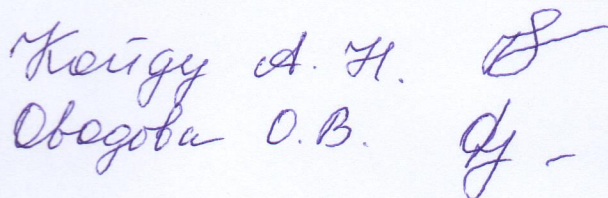 Койду А. Н.
Оводова О. В.